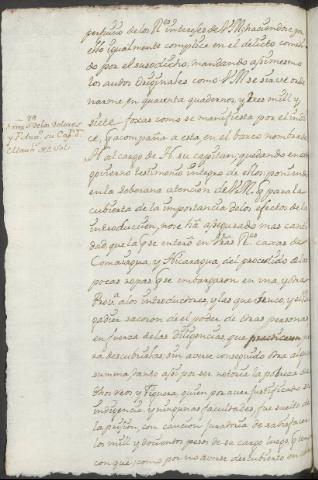 perjuicio de los R.s intereses de VM, haciendose por
ello igualmente complice en el delicto cometi
do por el susodicho, mandando assimesmo
los autos Originales como VM se sirve orde
narme, en quarenta quadernos, y tres mill y
siete foxas como se manifiesta por el indi
ce, q acompaña a esta, en el barco nombrado
A al cargo de H su capitan, quedando en este
govierno testimonio integro de ellos, poniendo
en la soberana atencion de VM q para la
cubierta de la importancia de los efectos de la
introduccion, no se ha asegurado mas canti
dad que la q se enterò en Vras R.s caxas de
Comaiagua, y Nicaragua, del procedido de las
pocas ropas que embargaron en una, y otra
Prov.a a los introductores, y las que
pudieron sacarse del poder de otras personas
en fuerza de las diligencias que practicaron pa
ra descubrirlas, sin averse conseguido otra alguna
summa, tanto assi por ser notoria la pobreza de
thorreo y Figuera, quien por aver justificado su
indigencia, y ningunas facultades, fue suelto de
la pricion, con caucion juratoria de satisfacer
los mill y doscientos pesos de su cargo luego q
con que; como por no averse descubierto en
de los Dolores
y su Cap.n
del Sol